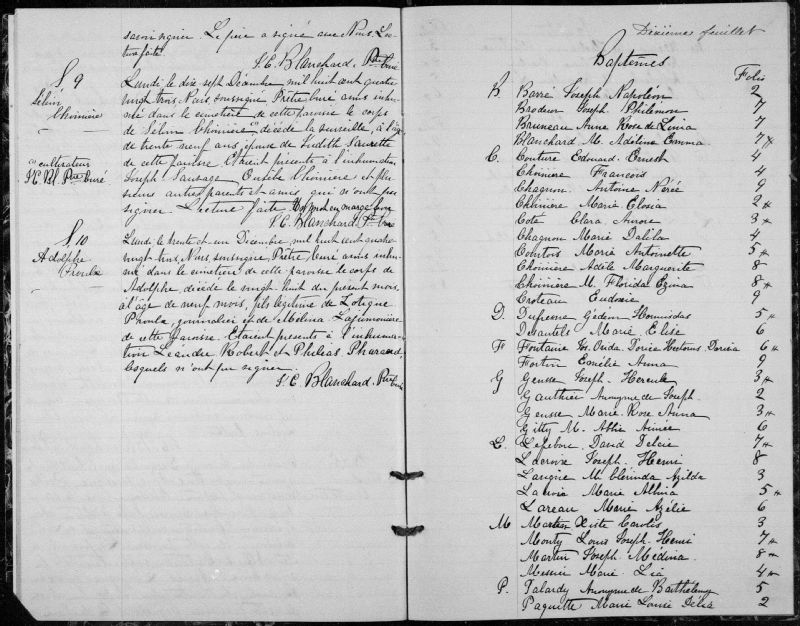 savoir signer. Le père a signé avec Nous. Lec-
ture faite
J. C. Blanchard. Ptre Curé
S 9
Sélim
Choinière
a cultivateur
J. C. Bl. Ptre Curé
Lundi, le dix sept Décembre mil huit cent quatre
vingt trois, Nous soussigné, Prêtre Curé avons inhu-
mé dans le cimetière de cette paroisse le corps
de Sélim Choinière, a décédé la surveille, à l'âge
de trente neuf ans, époux de Judith Paurette
de cette paroisse. Etaient présents à l'inhumation
Joseph Sausage, Onésile Choinière et plu-
sieurs autres parents et amis, qui n'ont pu
signer. Lecture faite. mot en marge bon
J. C. Blanchard. Ptre Curé
S. 10
Adolphe
Proulx
Lundi, le trente et un Décembre, mil huit cent quatre
vingt trois, Nous soussigné, Prêtre Curé avons inhu-
mé dans le cimetière de cette paroisse le corps de
Adolphe, décédé le vingt huit du présent mois,
à l'âge de neuf mois, fils légitime de
Proulx, journalier et de Mélina Lajeunesse
de cette paroisse. Etaient présents à l'inhuma-
tion Léandre Robert et Philias Pharand,
lesquels n'ont pu signer.
J. C. Blanchard. Ptre Curé
Dixième feuillet
Baptêmes
Folio
B Barré Joseph Napoléon 2
Brodeur Joseph Philémon 7
Bruneau Anne Rose de Lima 7
Blanchard M. Adélina Emma 7 v
C. Couture Edouard Ernest 4
Choinière François 4
Chagnon Antoine Nérée 9
Choinière Marie Elosia 2 v
Coté Clara Aurore 3 v
Chagnon Marie Dalila 4
Courtois Marie Antoinette 5 v
Choinière Adèle Marguerite 8
Choinière M. Florida Ezina 8 v
Croteau Eudoxie 9
D. Dufresne Gédéon Hormisdas 5 v
Desautels Marie Elise 6
F Fontaine Jos. Dorica 6 v
Fortin Emélie Anna 9
G Geusse Joseph Hercule 3 v
Gauthier Anonyme de Joseph 2
Geusse Marie Rose Anna 3 v
Gitty M. Abbie Aimée 6
L. Lefebvre David Delcié 7 v
Lacroix Joseph Henri 8
Lavigne M. Clérinda Azilda 3
Lacroix Marie Albina 5 v
Lareau Marie Azélie 6
M Martin Xiste Carolis 3
Monty Louis Joseph Henri 7 v
Martin Joseph Médina 8 v
Messier Marie Lia 4 v
P. Palardy Anonyme de Barthélemy 5
Paquette Marie Louise Délia 2